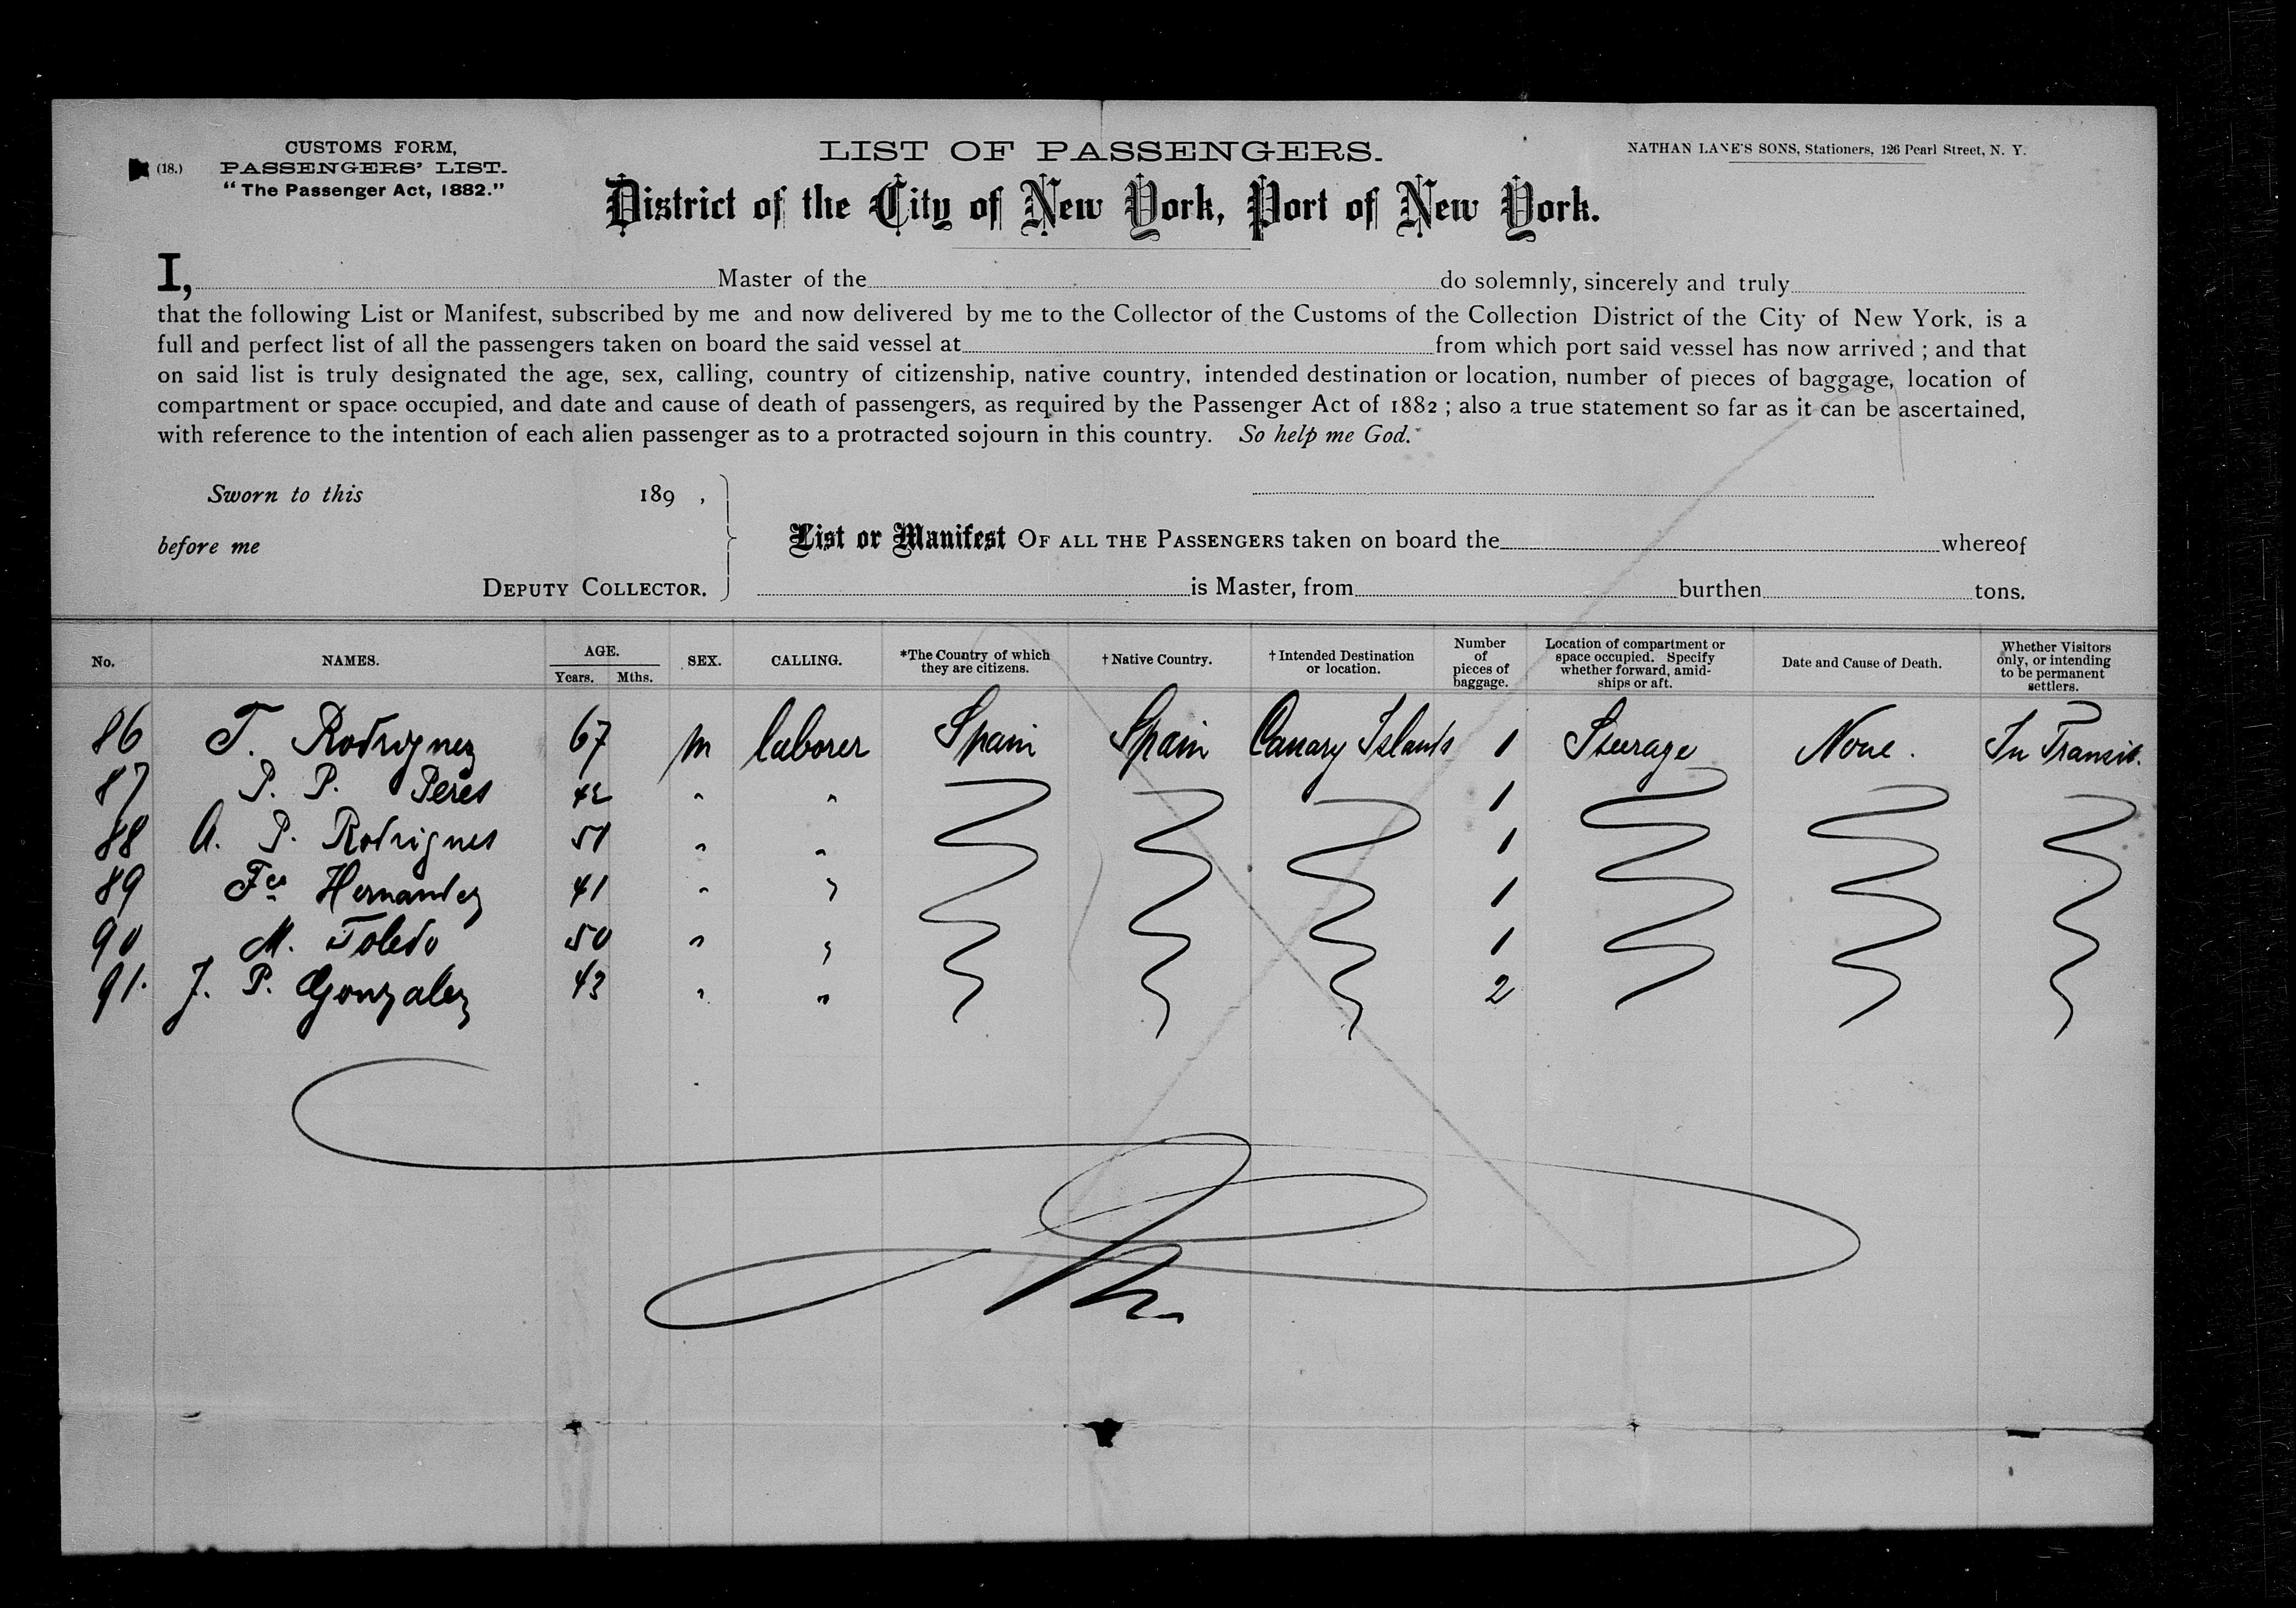 (18.)
CUSTOMS FORM,
PASSENGERS' LIST.
"The Passenger Act, 1882."
LIST OF PASSENGERS.
NATHAN LANE'S SONS, Stationers, 126 Pearl Street, N. Y.
District of the City of New York, Port of New York.
I, Master of the do solemnly, sincerely and truly
that the following List or Manifest, subscribed by me and now delivered by me to the Collector of the Customs of the Collection District of the City of New York, is a
full and perfect list of all the passengers taken on board the said vessel at from which port said vessel has now arrived ; and that
on said list is truly designated the age, sex, calling, country of citizenship, native country, intended destination or location, number of pieces of baggage, location of
compartment or space occupied, and date and cause of death of passengers, as required by the Passenger Act of 1882 ; also a true statement so far as it can be ascertained,
with reference to the intention of each alien passenger as to a protracted sojourn in this country. So help me God.
Sworn to this 189 ,
before me
DEPUTY COLLECTOR.
List or Manifest OF ALL THE PASSENGERS taken on board the whereof
is Master, from burthen tons.
No. NAMES. AGE. Years. Mths. SEX. CALLING. *The Country of which they are citizens. † Native Country. † Intended Destination or location. Number of pieces of baggage. Location of compartment or space occupied. Specify whether forward, amid-ships or aft. Date and Cause of Death. Whether Visitors only, or intending to be permanent settlers.
86 T. Rodriguez 67 m laborer Spain Spain Canary Islands 1 Steerage None. In Transit.
87 P. P. Peres 42 " " 1
88 A. P. Rodrigues " " 1
89 Fco Hernandez 41 " " 1
90 M. Toledo 50 " " 1
91. J. P. Gonzalez 43 " " 2